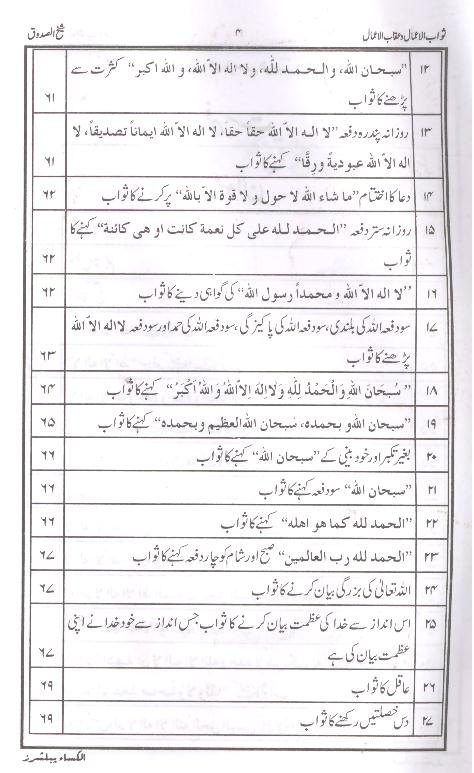 ثواب الاعمال و عقاب الاعمال ۴ شیخ الصدوق
۱۲ ”سبحان الله، والحمد لله، ولا اله الا الله، و الله اکبر“ کثرت سے
پڑھنے کا ثواب ۶۱
۱۳ روزانہ پندرہ دفعہ ”لا اله الا الله حقاً حقا، لا اله الا الله ایماناً تصدیقاً، لا
اله الا الله عبودیة ورقًا“ کہنے کا ثواب ۶۱
۱۴ دعا کا اختتام ”ما شاء الله لا حول و لا قوة الا بالله“ پر کرنے کا ثواب ۶۲
۱۵ روزانہ ستر دفعہ ”الحمد لله علی کل نعمة کانت او هی کائنة“ کہنے کا
ثواب ۶۲
۱۶ ”لا اله الا الله و محمداً رسول الله“ کی گواہی دینے کا ثواب ۶۲
۱۷ سو دفعہ اللہ کی بلندی، سو دفعہ اللہ کی پاکیزگی، سو دفعہ اللہ کی حمد اور سو دفعہ لا اله الا الله
پڑھنے کا ثواب ۶۳
۱۸ ”سُبحَانَ اللهِ وَالْحَمْدُ لِلّٰهِ وَلَا اِلٰهَ اِلَّا اللهُ وَ اللهُ اَکْبَرُ“ کہنے کا ثواب ۶۴
۱۹ ”سبحان الله و بحمده، سُبحان الله العظیم و بحمده“ کہنے کا ثواب ۶۵
۲۰ بغیر تکبر اور خود بینی کے ”سبحان الله“ کہنے کا ثواب ۶۶
۲۱ ”سبحان الله“ سو دفعہ کہنے کا ثواب ۶۶
۲۲ ”الحمد لله کما هو اهله“ کہنے کا ثواب ۶۶
۲۳ ”الحمد لله رب العالمین“ صبح اور شام کو چار دفعہ کہنے کا ثواب ۶۷
۲۴ اللہ تعالیٰ کی بزرگی بیان کرنے کا ثواب ۶۷
۲۵ اس انداز سے خدا کی عظمت بیان کرنے کا ثواب جس انداز سے خود خدا نے اپنی
عظمت بیان کی ہے ۶۷
۲۶ عاقل کا ثواب ۶۹
۲۷ دس خصلتیں رکھنے کا ثواب ۶۹
الکساء پبلشرز